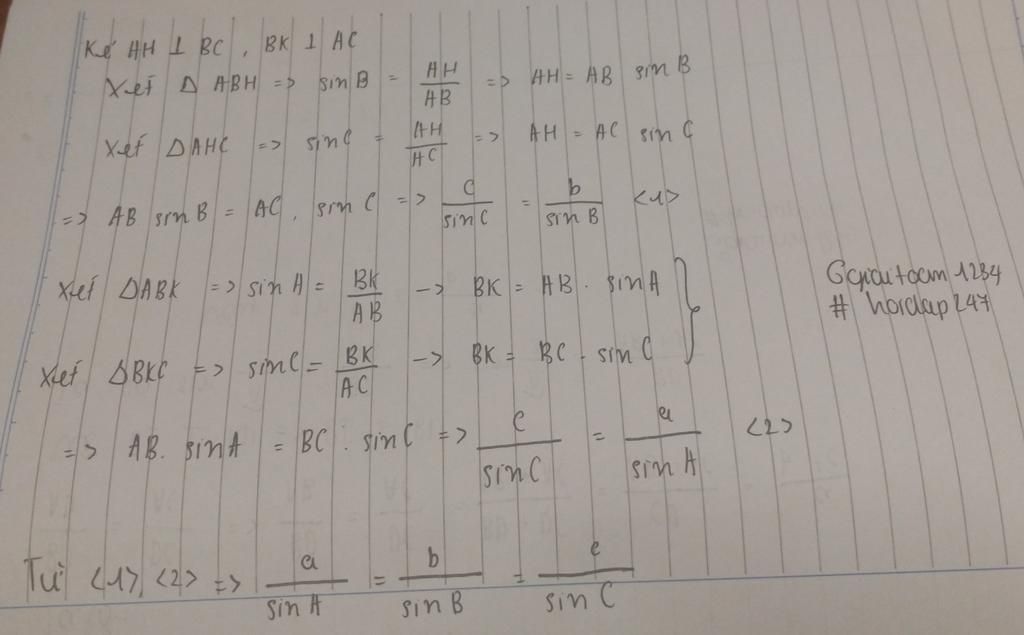 Kẻ AH ⊥ BC, BK ⊥ AC
Xét Δ ABH => sinB = AH/AB => AH = AB sinB
Xét ΔAHC => sinC = AH/AC => AH = AC sinC
=> AB sinB = AC. sinC => c/sinC = b/sinB <1>
Xét ΔABK => sinA = BK/AB -> BK = AB . sinA
Xét ΔBKC => sinC = BK/AC -> BK = BC . sinC
=> AB. sinA = BC . sinC => c/sinC = a/sinA <2>
Từ <1>, <2> => a/sinA = b/sinB = c/sinC
# hoidap247